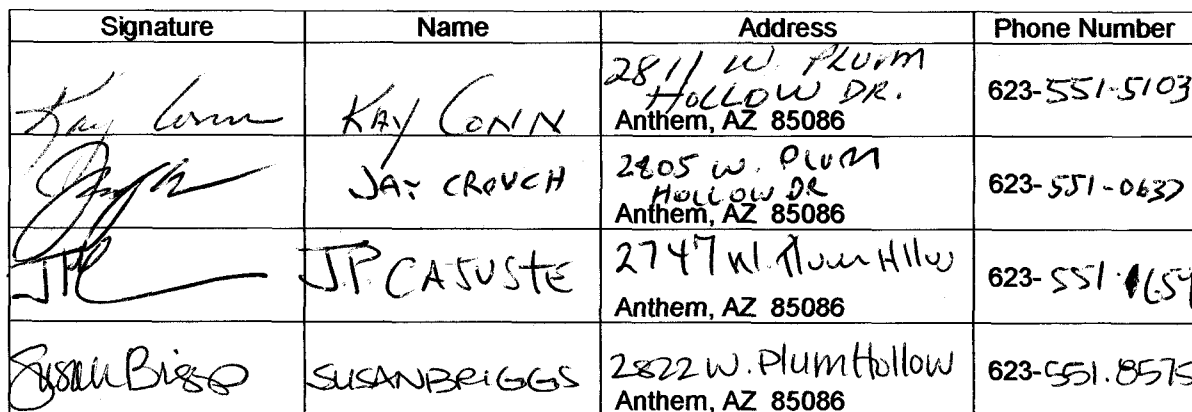 Signature Name Address Phone Number
Kay Conn KAY CONN 2811 W. PLUM
HOLLOW DR.
Anthem, AZ 85086 623-551-5103
JAY CROUCH 2805 W. PLUM
HOLLOW DR
Anthem, AZ 85086 623-551-0637
JP JP. CAJUSTE 2747 W. Plum Hllw
Anthem, AZ 85086 623-551
Susan Briggs SUSAN BRIGGS 2822 W. Plum Hollow
Anthem, AZ 85086 623-551.8575